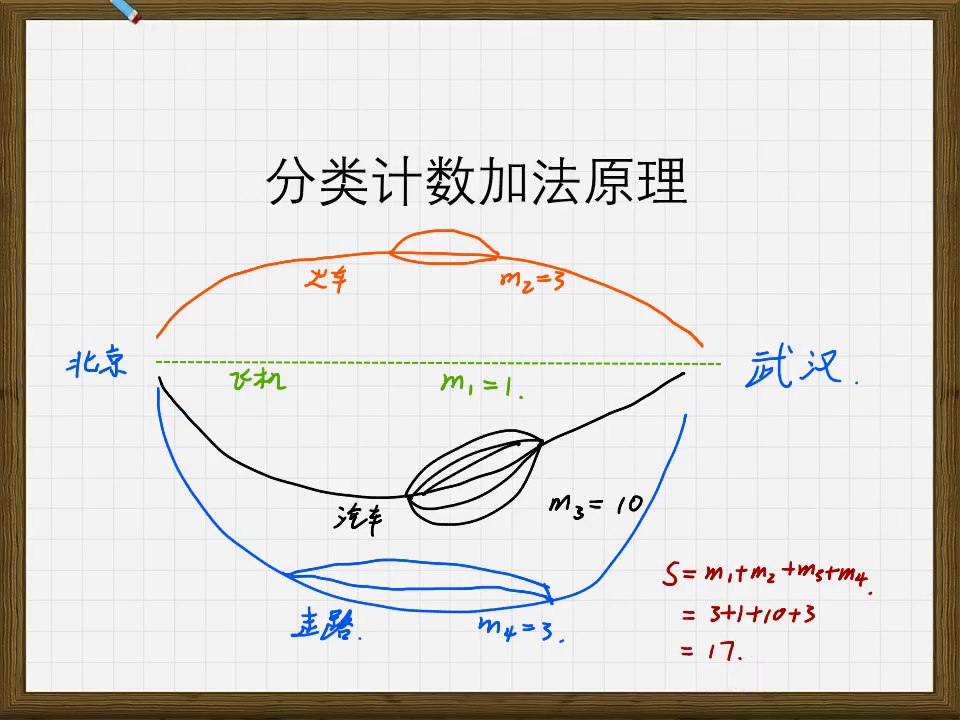 分类计数加法原理
火车 m₂=3
北京 武汉.
飞机 m₁=1.
汽车 m₃=10
走路. m₄=3.
S=m₁+m₂+m₃+m₄.
=3+1+10+3
=17.